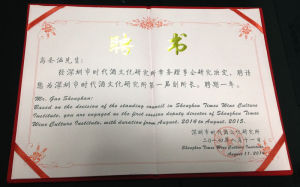 聘 书
先生：
经深圳市时代酒文化研究所常务理事会研究决定，聘请
您为深圳市时代酒文化研究所第一届副所长，聘期一年。
Mr. Gao Shenghan:
Based on the decision of the standing council in Shenzhen Times Wine Culture
Institute, you are engaged as the first session deputy director of Shenzhen Times
Wine Culture Institute, with duration from August, 2014 to August, 2015.
深圳市时代酒文化研究所
二〇一四年八月十一日
Shenzhen Times Wine Culture Institute
August 11, 2014